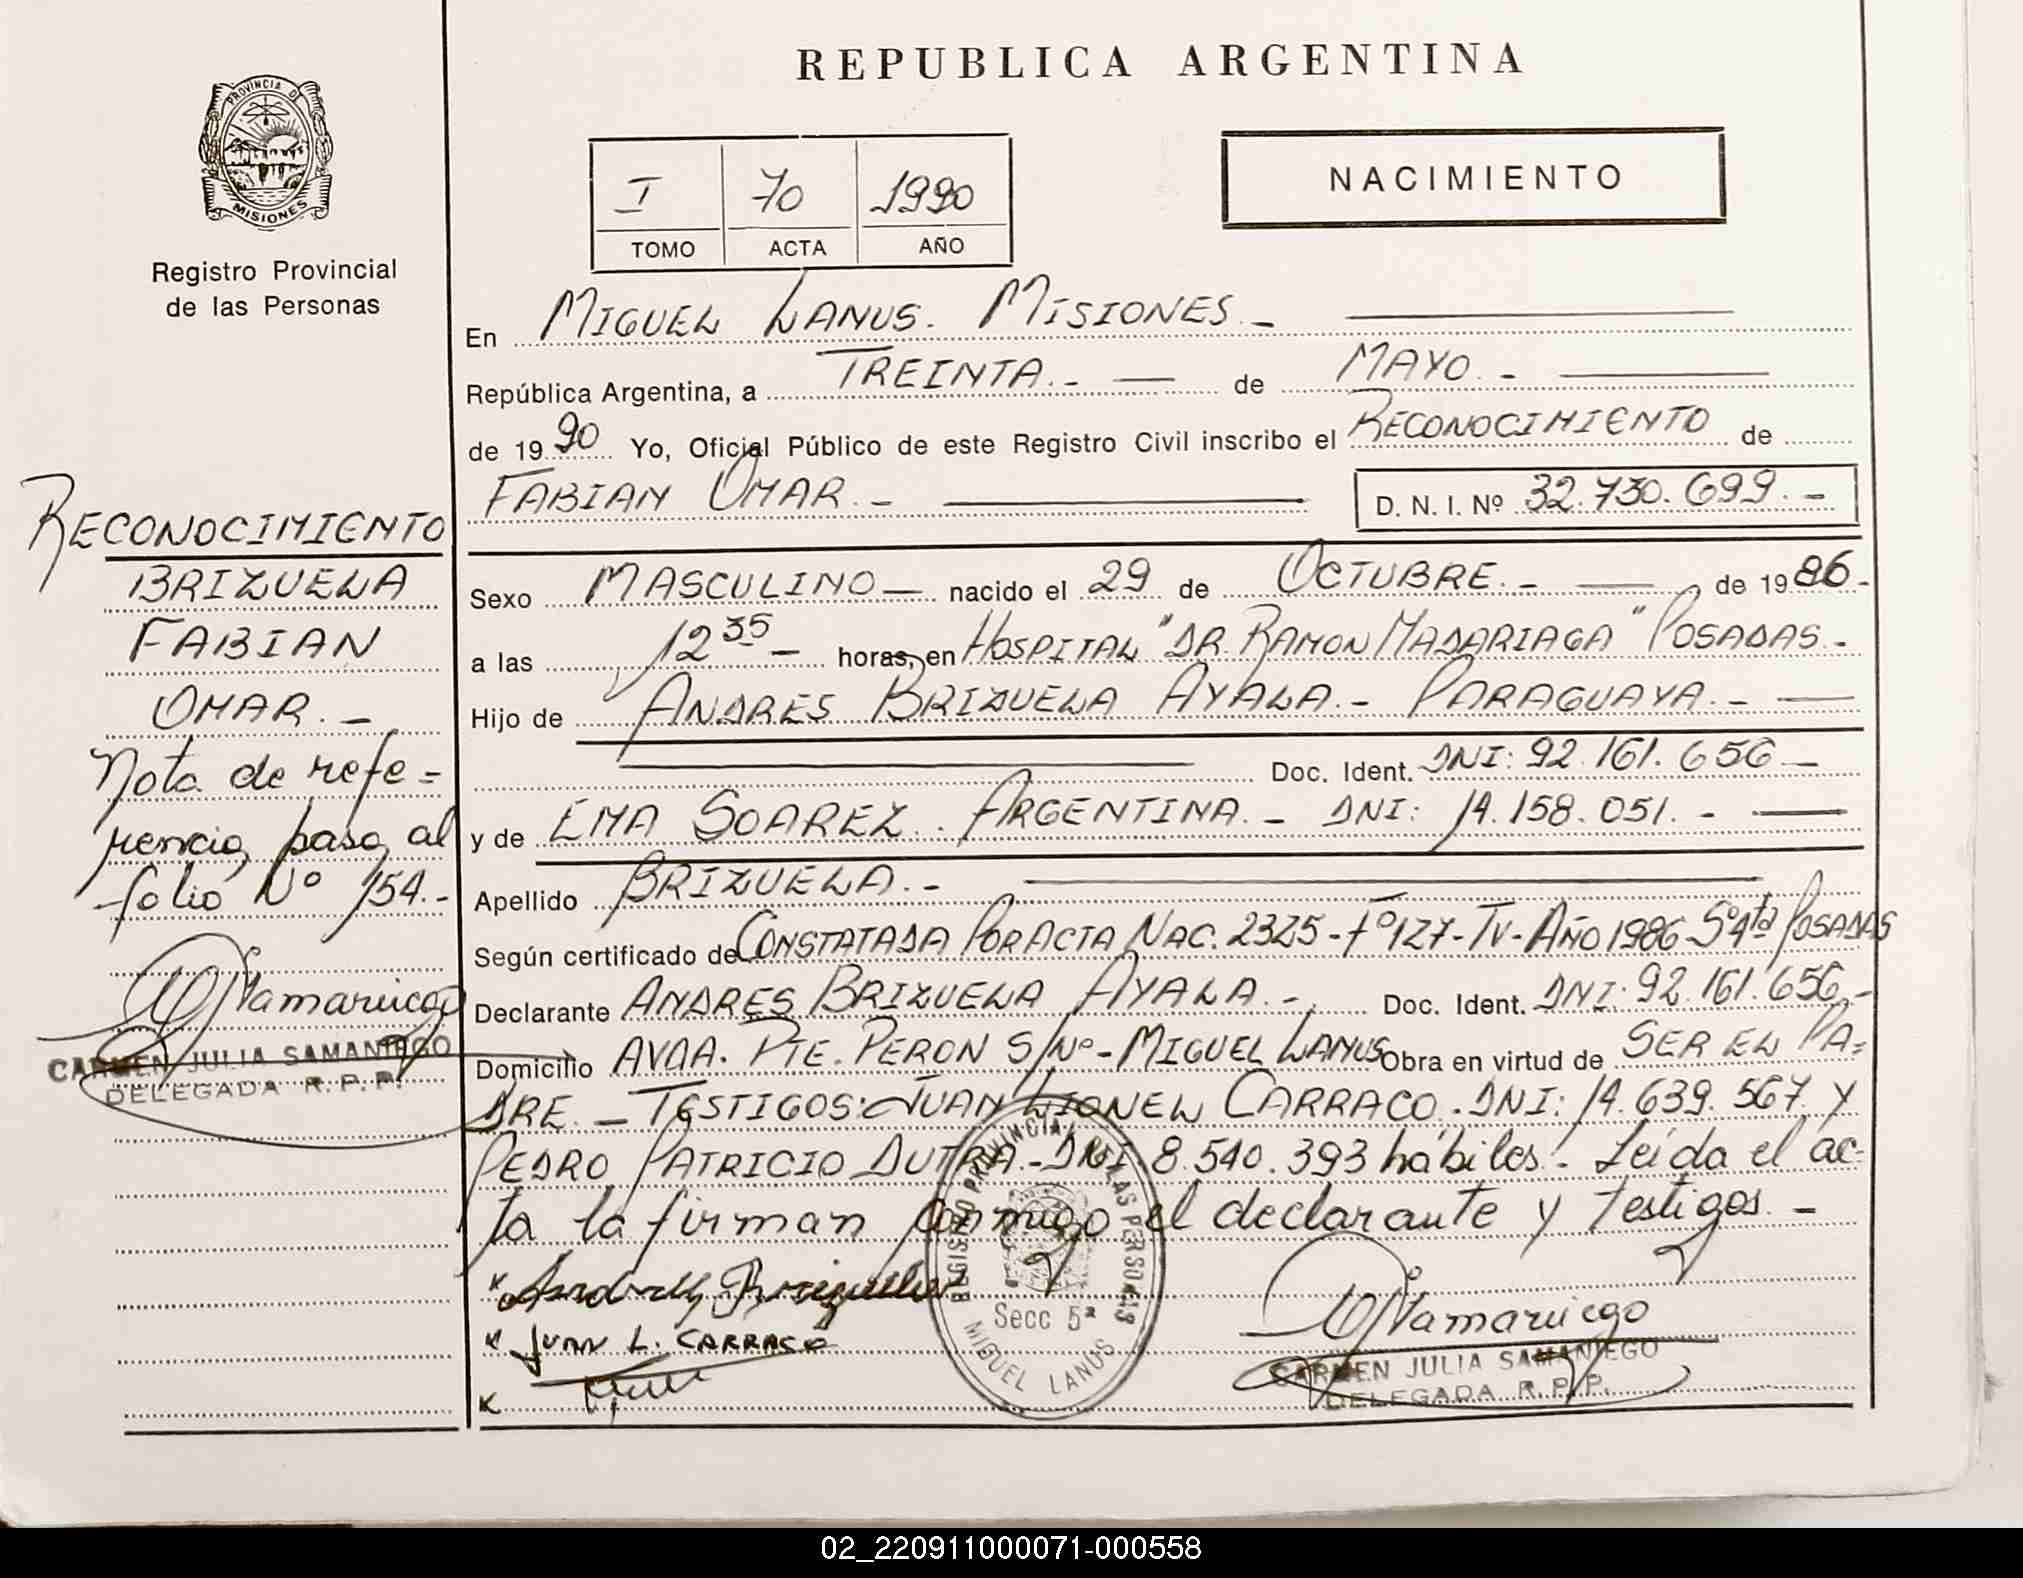 REPUBLICA ARGENTINA
PROVINCIA DE
MISIONES
Registro Provincial
de las Personas
I 70 1990
TOMO ACTA AÑO
NACIMIENTO
En MIGUEL LANUS. MISIONES.-
República Argentina, a TREINTA.- de MAYO.-
de 1990 Yo, Oficial Público de este Registro Civil inscribo el RECONOCIMIENTO de
FABIAN OMAR.- D. N. I. Nº 32.730.699.-
RECONOCIMIENTO
BRIZUELA
FABIAN
OMAR.-
Nota de refe=
rencia, pasa, al
folio Nº 154.-
CARMEN JULIA SAMANIEGO
DELEGADA R.P.P.
Sexo MASCULINO- nacido el 29 de OCTUBRE.- de 1986-
a las 12 35- horas, en HOSPITAL "DR. RAMON MADARIAGA" POSADAS.-
Hijo de ANDRES BRIZUELA AYALA.- PARAGUAYA.-
Doc. Ident. DNI: 92.161.656-
y de EMA SOAREZ. ARGENTINA.- DNI: 14.158.051.-
Apellido BRIZUELA.-
Según certificado de CONSTATADA POR ACTA NAC. 2325-Fº127-TV-AÑO 1986 Sº4ta POSADAS
Declarante ANDRES BRIZUELA AYALA.- Doc. Ident. DNI: 92.161.656.-
Domicilio AVDA. PTE. PERON S/Nº-MIGUEL LANUS Obra en virtud de SER EL PA=
DRE.-TESTIGOS: JUAN LIONEL CARRACO. DNI: 14.639.567. Y
PEDRO PATRICIO DUTRA-DNI 8.540.393 hábiles. Leída el ac-
ta la firman conmigo el declarante y testigos.-
Andrés Brizuela
JUAN L. CARRACO
REGISTRO PROVINCIAL DE LAS PERSONAS
Secc 5ª
MIGUEL LANUS
CARMEN JULIA SAMANIEGO
DELEGADA R.P.P.
02_220911000071-000558